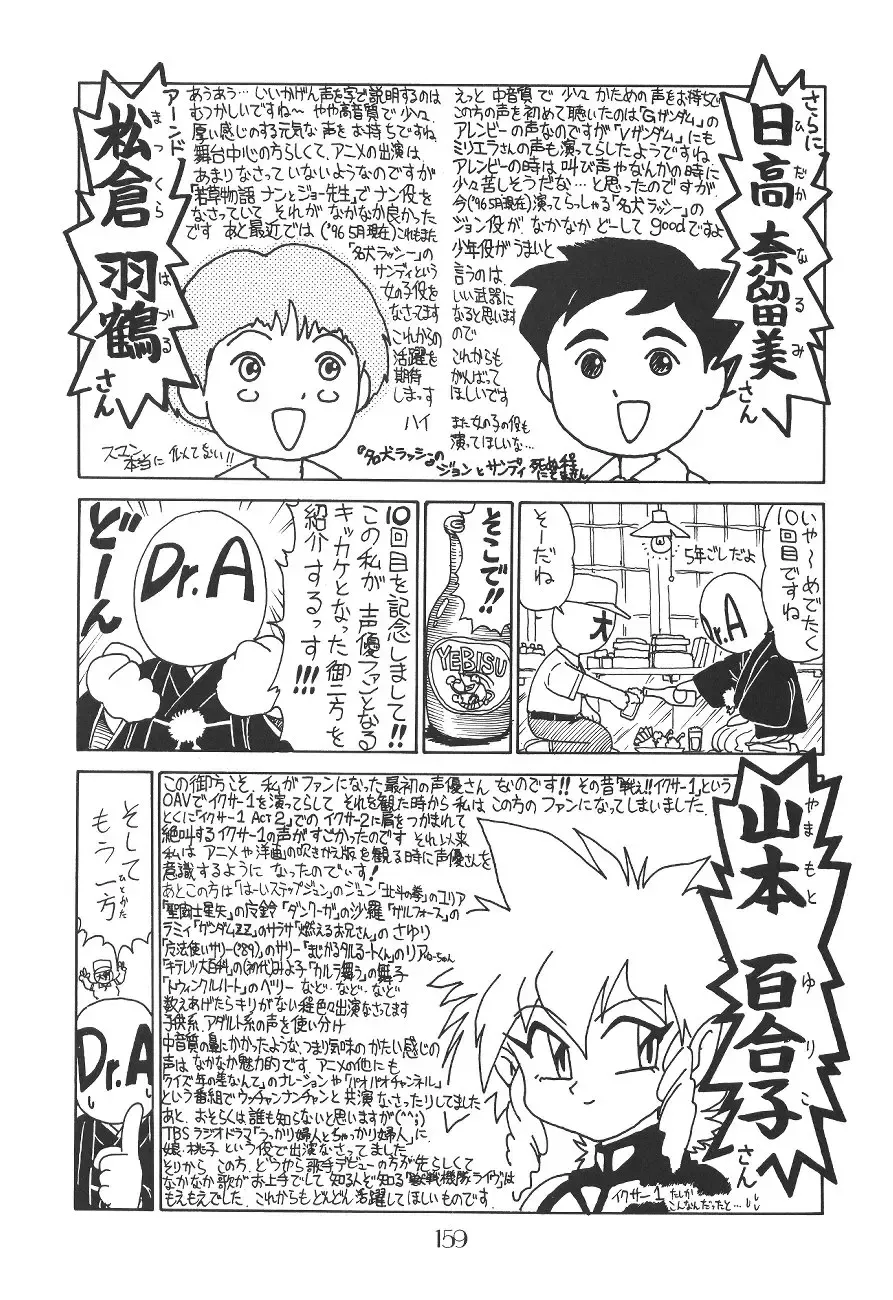 さらに
日高 奈留美さん
ひだか なるみ
えっと 中音質で 少々 かための 声をお持ちで
この方の声を初めて聴いたのは「Gガンダム」の
アレンビーの声なのですが「Vガンダム」にも
ミリエラさんの声も演ってらしたようですね
アレンビーの時は叫び声やなんかの時に
少々苦しそうだな…と思ったのですが
今('96 5月現在)演ってらっしゃる「名犬ラッシー」の
ジョン役が なかなか どーして goodですよ
少年役がうまいと
言うのは、
いい武器に
なると思います
ので
これからも
がんばって
ほしいです
また女の子の役も
演ってほしいな…
アーンド
松倉 羽鶴さん
まつくら はづる
あうあう…いいかげん声を字で説明するのは
むつかしいですね〜 やや高音質で少々、
厚い感じのする元気な 声を お持ちですね
舞台中心の方らしくて、アニメの出演は、
あまりなさって いないようなのですが
「若草物語 ナンとジョー先生」で ナン役を
なさっていて それが なかなか良かった
です あと最近では('96 5月現在)これもまた
「名犬ラッシー」の
サンディという
女の子役を
なさってます
これからの
活躍を
期待
しまっす
ハイ
スマン
本当に 似てない!!
「名犬ラッシー」の
ジョンとサンディ
いや〜めでたく
10回目ですね
5年ごしだよ
そーだね
大
Dr.A
そこで!!
YEBISU
10回目を記念しまして!!
この私が 声優ファンとなる
キッカケとなった御二方を
紹介するっす!!!
Dr.A
どーん
山本 百合子さん
やまもと ゆりこ
この御方こそ、私がファンになった最初の声優さん なのです!! その昔「戦え!!イクサー1」という
OAVでイクサー1を演ってらして それを観た時から 私は この方の ファンになってしまいました
とくに「イクサー1 Act2」での イクサー2に肩をつかまれて
絶叫するイクサー1の声がすごかったのです それ以来
私は アニメや洋画の吹きかえ版を観る時に声優さんを
意識するように なったのでぃす!
あとこの方は「はーいステップジュン」のジュン「北斗の拳」のユリア
「聖闘士星矢」の 「ダンクーガ」の沙羅「ガルフォース」の
ラミィ「ガンダムZZ」のサラサ「燃えるお兄さん」の さゆり
「魔法使いサリー('89)」のサリー「まじかるタルるートくん」のリア
「キテレツ大百科」の(初代)みよ子「カルラ舞う」の 舞子
「トウィンクルハート」の ベリー など…など…など
数えあげたらキリがない程色々出演なさってます
子供系、アダルト系の声を使い分け
中音質の にかかったような、つまり気味の かたい感じの
声は なかなか魅力的です アニメの他にも
クイズ年の差なんて」のナレーションや「パオパオチャンネル」
という番組で ウッチャンナンチャンと 共演 なさったりしてました
あと、おそらくは誰も知らないと思いますが(^^;)
TBSラジオドラマ「うっかり婦人とちゃっかり婦人」に
娘、桃子 という役で出演なさってました
そりから この方、どうやら歌手デビューの方が先らしくて
なかなか歌が お上手でして 知る人ぞ知る「獣戦機隊ライヴ」は
もえもえでした これからもどんどん活躍してほしいものです。
イクサー1 たしか
こんなんだったと…
そして
もう一方
ひとかた
Dr.A
159